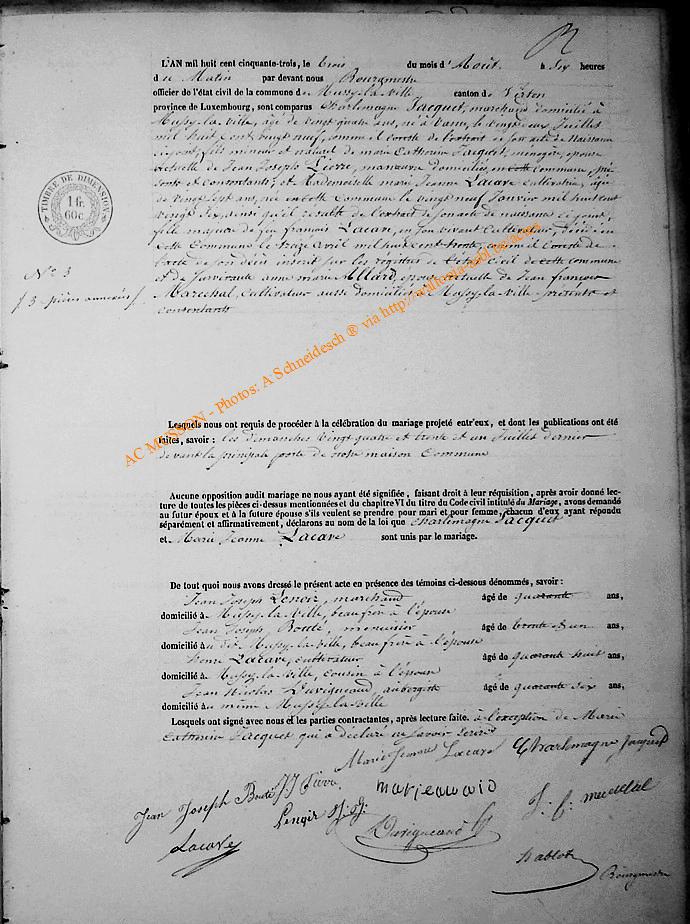 L'AN mil huit cent cinquante-trois, le trois du mois d'Août à six heures
du Matin par devant nous Bourgmestre
officier de l'état civil de la commune de Mussy-la-Ville canton de Virton
province de Luxembourg, sont comparus Charlemagne Jacquet, marchand domicilié à
Mussy-la-Ville, âgé de vingt quatre ans, né à le vingt deux Juillet
mil huit cent vingt neuf, comme il conste de l'extrait de son acte de naissance
ci-joint, fils mineur et naturel de marie Catherine Jacquet, ménagère, épouse
actuelle de Jean Joseph manœuvre domiciliés en cette Commune, pré-
sente et consentante; et Mademoiselle marie Jeanne Lacave cultivatrice, âgée
de vingt sept ans, née en cette Commune le vingt neuf Janvier mil huit cent
vingt six, ainsi qu'il résulte de l'extrait de son acte de naissance ci-joint,
fille majeure de feu françois Lacave, en son vivant Cultivateur, décédé en
cette Commune le treize avril mil huit cent trente, comme il conste de
l'acte de son décès inscrit sur les registres de l'état civil de cette commune
et de survivante anne marie Allard, épouse actuelle de Jean françois
Marechal, cultivateur aussi domiciliés à Mussy-la-Ville présents et
consentants
TIMBRE DE DIMENSION
1 fr.
60 c.
N° 3
/ 3 pièces annexées /
Lesquels nous ont requis de procéder à la célébration du mariage projeté entr'eux, et dont les publications ont été
faites, savoir : les dimanches vingt quatre et trente et un Juillet dernier
devant la principale porte de notre maison Commune
Aucune opposition audit mariage ne nous ayant été signifiée, faisant droit à leur réquisition, après avoir donné lec-
ture de toutes les pièces ci-dessus mentionnées et du chapitre VI du titre du Code civil intitulé du Mariage, avons demandé
au futur époux et à la future épouse s'ils veulent se prendre pour mari et pour femme, chacun d'eux ayant répondu
séparément et affirmativement, déclarons au nom de la loi que Charlemagne Jacquet
et Marie Jeanne Lacave sont unis par le mariage.
De tout quoi nous avons dressé le présent acte en présence des témoins ci-dessous dénommés, savoir :
Jean Joseph Lenoir, marchand âgé de quarante ans,
domicilié à Mussy-la-Ville, beau frère à l'épouse
Jean Joseph Bouté, menuisier âgé de trente et un ans,
domicilié au dit Mussy-la-Ville, beau frère à l'épouse
Lacave, cultivateur âgé de quarante huit ans,
domicilié à Mussy-la-Ville, cousin à l'épouse
Jean Nicolas Duvigneaud, aubergiste âgé de quarante six ans,
domicilié au même Mussy-la-Ville
Lesquels ont signé avec nous et les parties contractantes, après lecture faite. à l'exception de Marie
Catherine Jacquet qui a déclaré ne savoir écrire
Marie Jeanne Lacave Charlemagne Jacquet
Jean Joseph Bouté
Lenoir
Duvigneaud
Lacave
Bourgmestre
AC MOISSON - Photos: A Schneidesch ® via